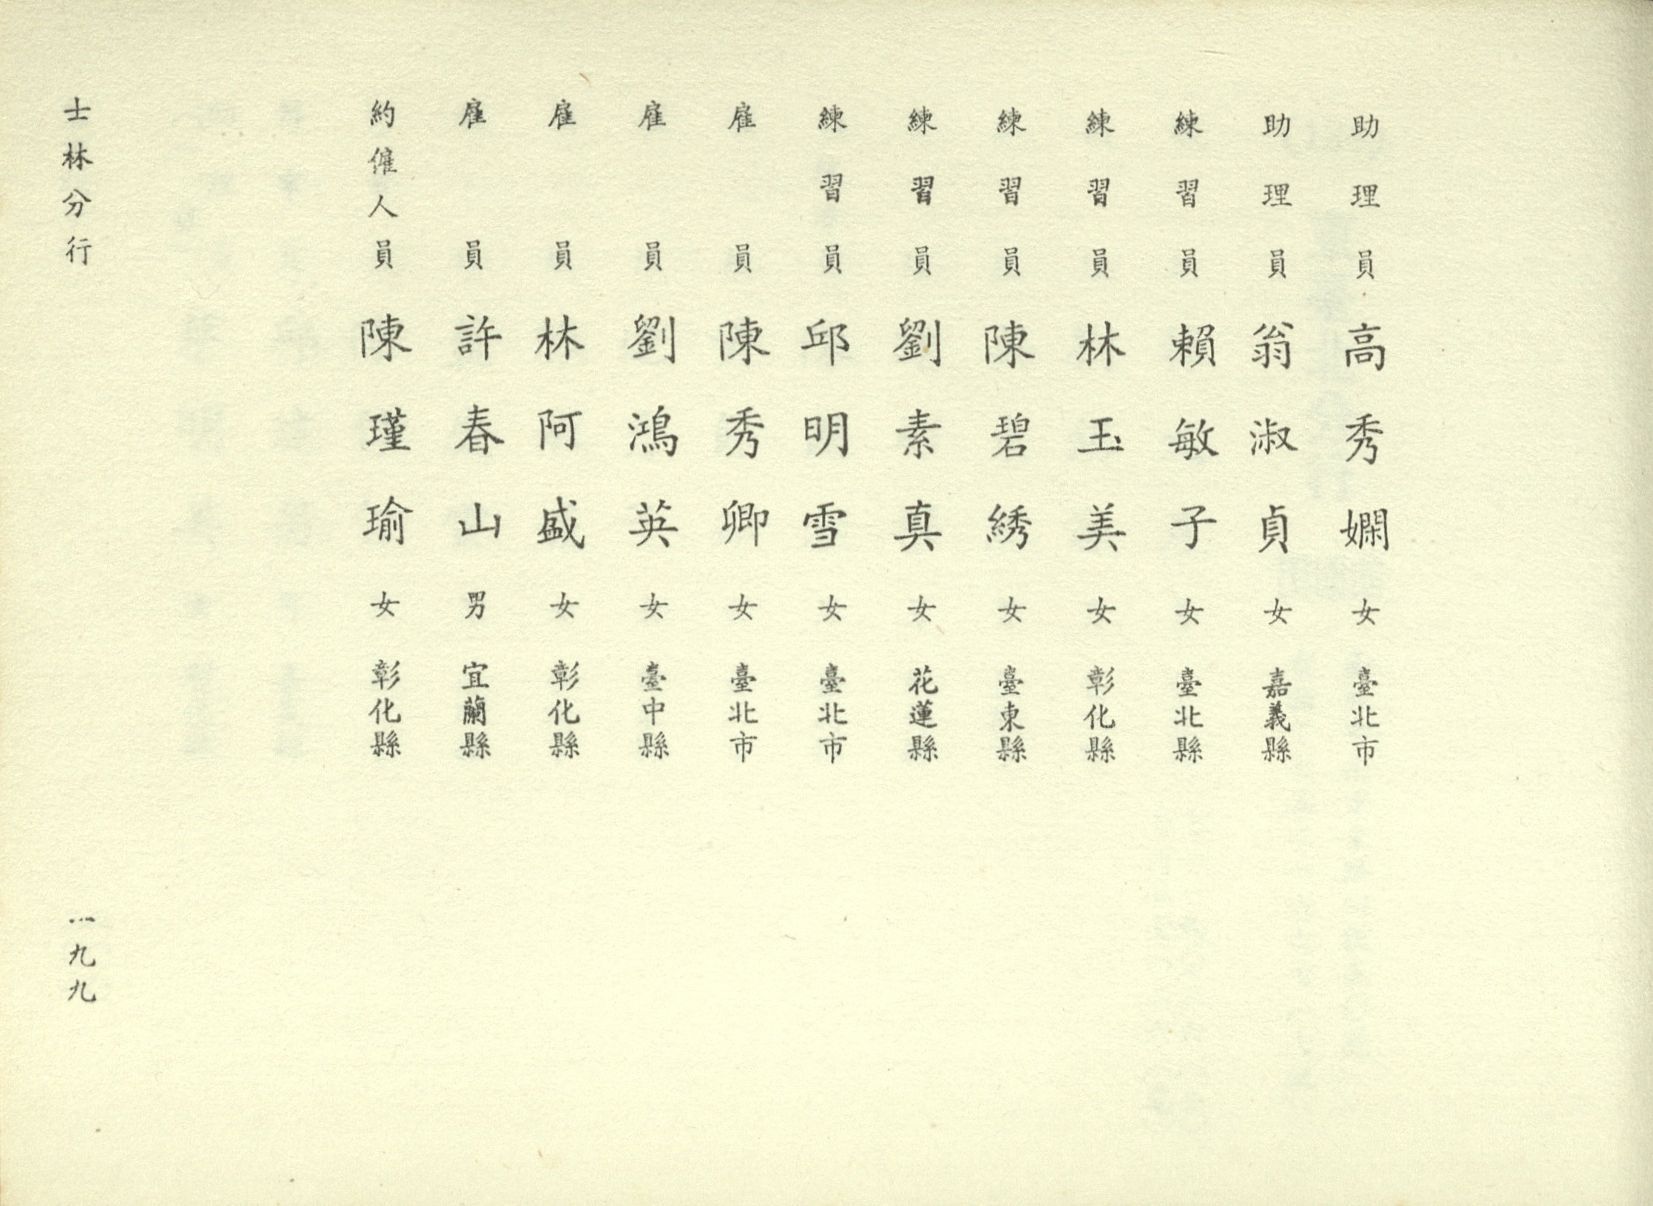 助理員高秀嫻女臺北市
助理員翁淑貞女嘉義縣
練習員賴敏子女臺北縣
練習員林玉美女彰化縣
練習員陳碧綉女臺東縣
練習員劉素真女花蓮縣
練習員邱明雪女臺北市
雇員陳秀卿女臺北市
雇員劉鴻英女臺中縣
雇員林阿盛女彰化縣
雇員許春山男宜蘭縣
約僱人員陳瑾瑜女彰化縣
士林分行
一九九